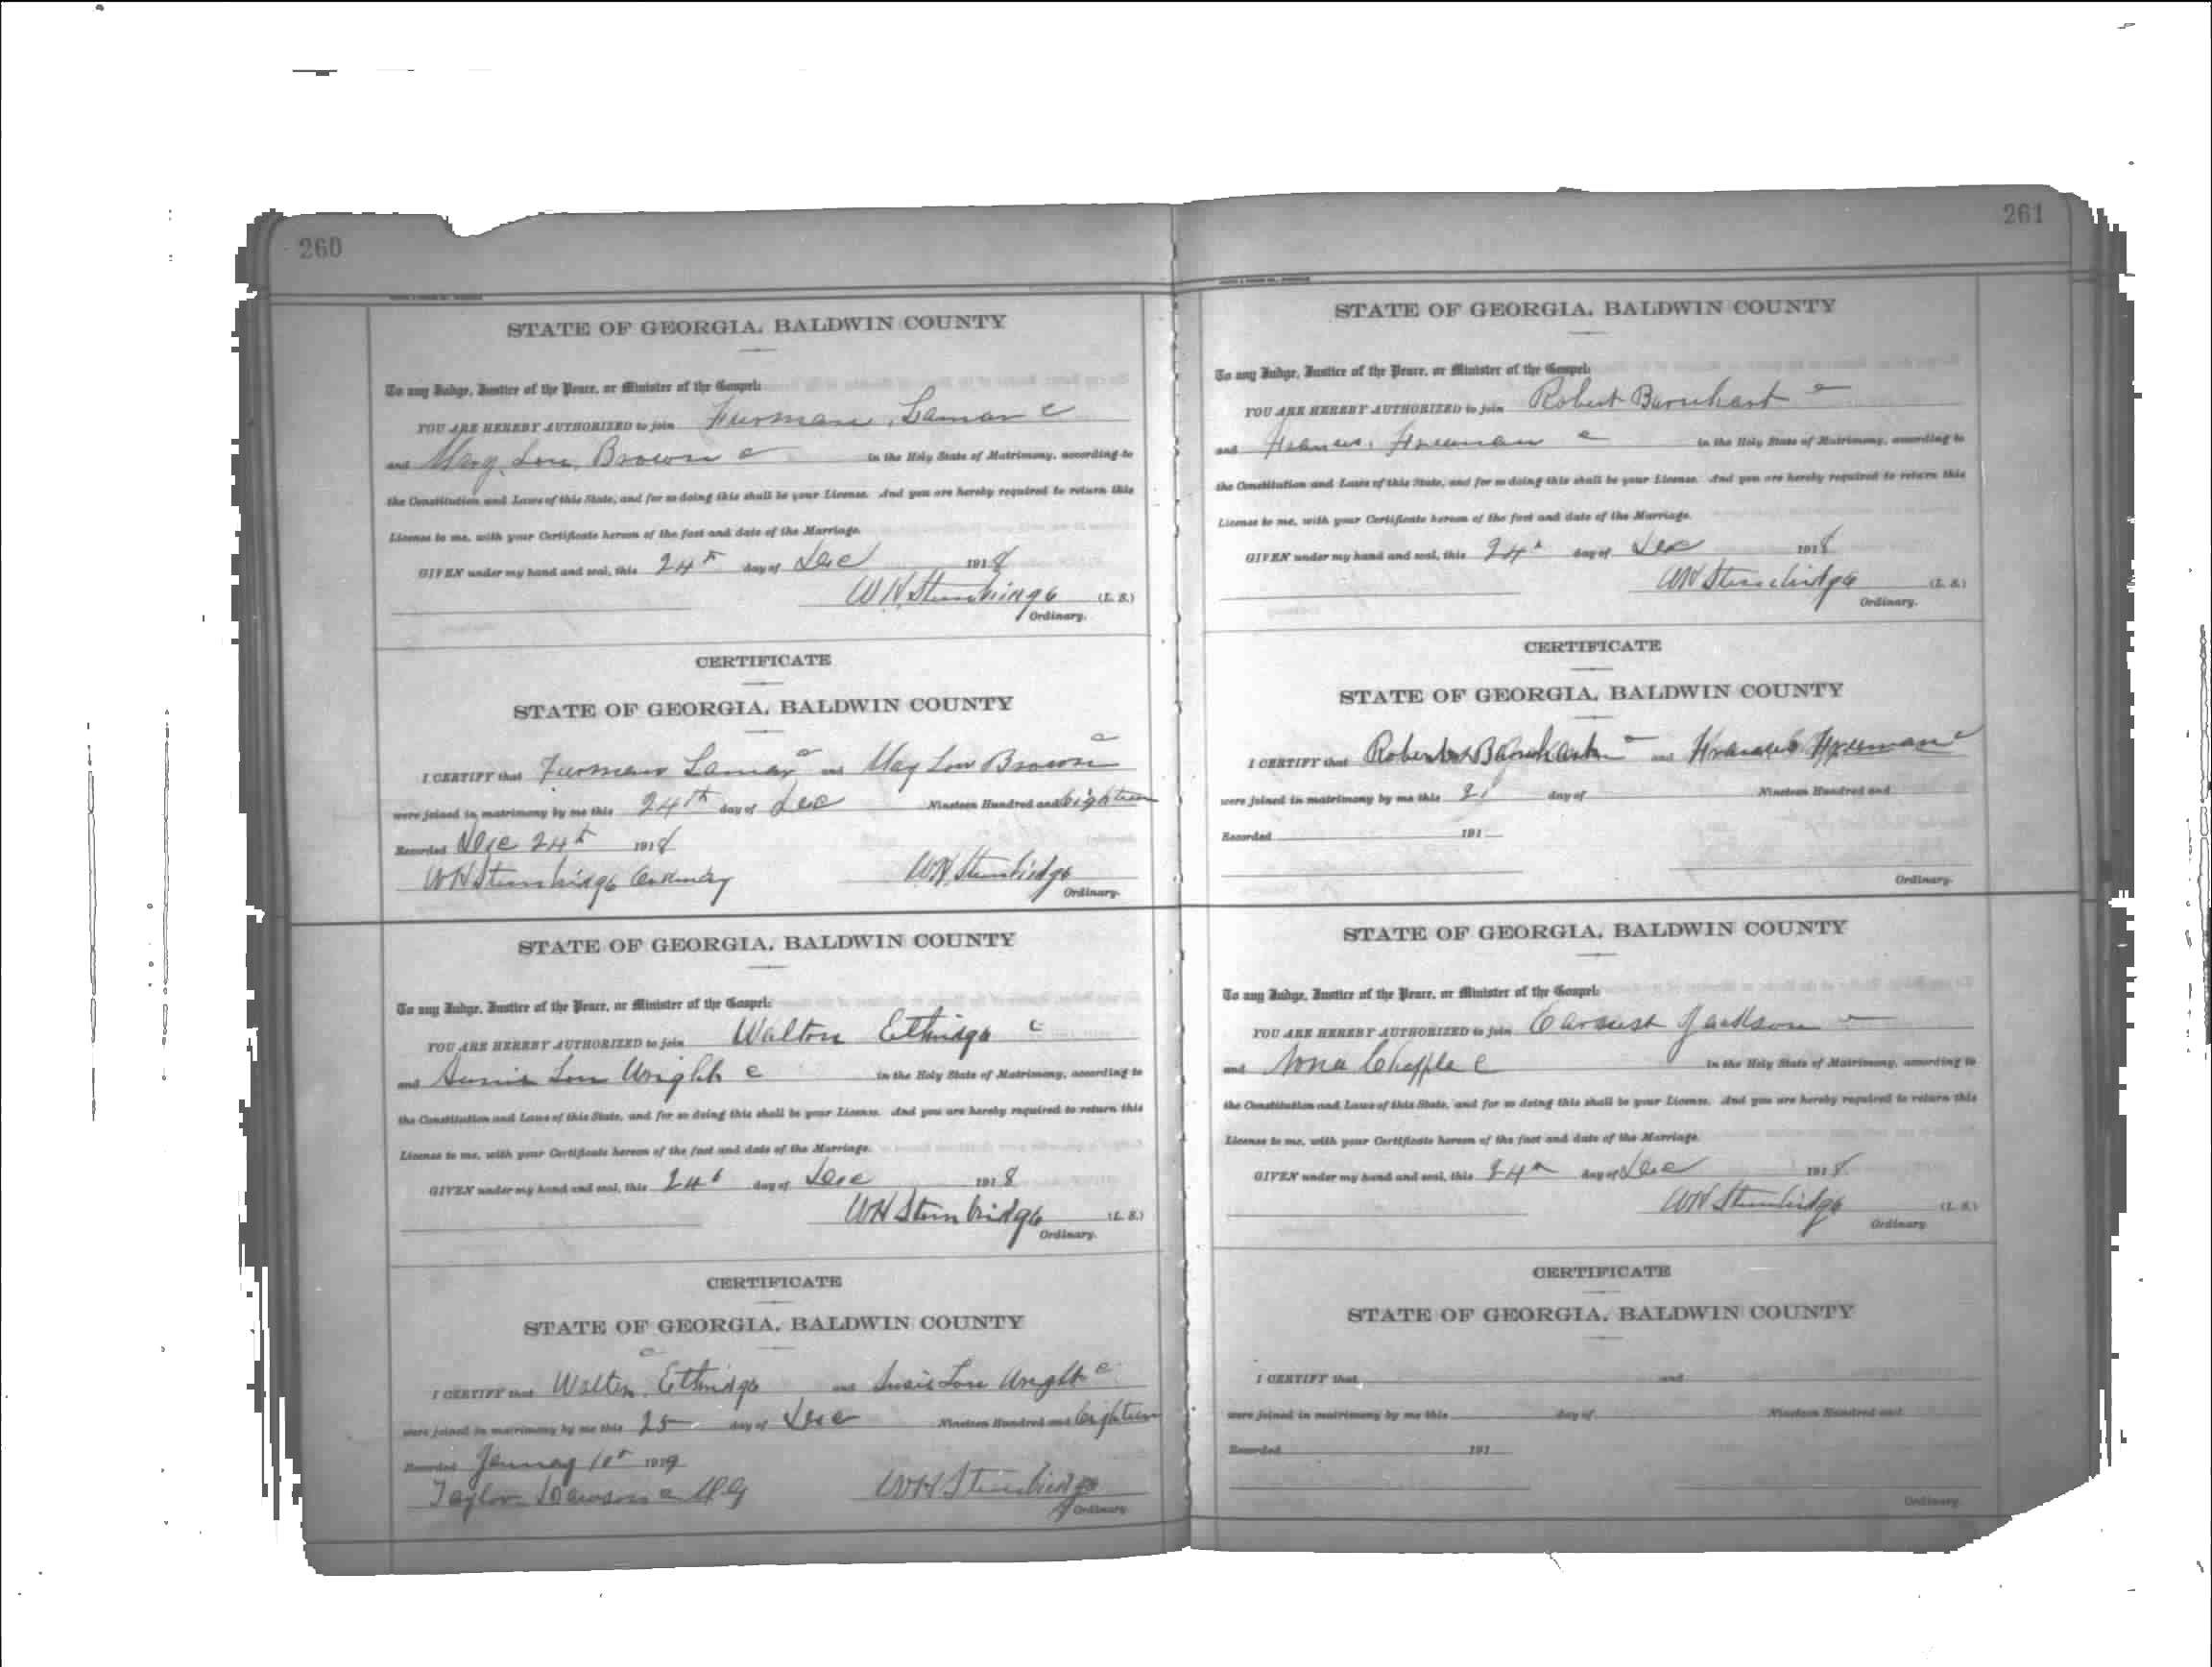 260
STATE OF GEORGIA, BALDWIN COUNTY
To any Judge, Justice of the Peace, or Minister of the Gospel:
YOU ARE HEREBY AUTHORIZED to join Furman Lamar c
and Mary Lou Brown c in the Holy State of Matrimony, according to
the Constitution and Laws of this State, and for so doing this shall be your License. And you are hereby required to return this
License to me, with your Certificate hereon of the fact and date of the Marriage.
GIVEN under my hand and seal, this 24th day of Dec 1918
WH Stembridge (L. S.)
Ordinary.
CERTIFICATE
STATE OF GEORGIA, BALDWIN COUNTY
I CERTIFY that Furman Lamar c and May Lou Brown c
were joined in matrimony by me this 24th day of Dec Nineteen Hundred and Eighteen
Recorded Dec 24th 1918
WH Stembridge Ordinary WH Stembridge
Ordinary.
STATE OF GEORGIA, BALDWIN COUNTY
To any Judge, Justice of the Peace, or Minister of the Gospel:
YOU ARE HEREBY AUTHORIZED to join Walton Ethridge c
and Lou Wright c in the Holy State of Matrimony, according to
the Constitution and Laws of this State, and for so doing this shall be your License. And you are hereby required to return this
License to me, with your Certificate hereon of the fact and date of the Marriage.
GIVEN under my hand and seal, this 24th day of Dec 1918
WH Stembridge (L. S.)
Ordinary.
CERTIFICATE
STATE OF GEORGIA, BALDWIN COUNTY
I CERTIFY that Walton Ethridge c and Susie Lou Wright c
were joined in matrimony by me this 25 day of Dec Nineteen Hundred and Eighteen
Recorded January 1919
Taylor Dawson c MG WH Stembridge
Ordinary
261
STATE OF GEORGIA, BALDWIN COUNTY
To any Judge, Justice of the Peace, or Minister of the Gospel:
YOU ARE HEREBY AUTHORIZED to join Robert Barnhart c
and Frances Freeman c in the Holy State of Matrimony, according to
the Constitution and Laws of this State, and for so doing this shall be your License. And you are hereby required to return this
License to me, with your Certificate hereon of the fact and date of the Marriage.
GIVEN under my hand and seal, this 24th day of Dec 1918
WH Stembridge (L. S.)
Ordinary.
CERTIFICATE
STATE OF GEORGIA, BALDWIN COUNTY
I CERTIFY that Robert Barnhart c and Frances Freeman c
were joined in matrimony by me this 21 day of Nineteen Hundred and
Recorded 191
Ordinary.
STATE OF GEORGIA, BALDWIN COUNTY
To any Judge, Justice of the Peace, or Minister of the Gospel:
YOU ARE HEREBY AUTHORIZED to join Earnest Jackson c
and Nona Chapple c in the Holy State of Matrimony, according to
the Constitution and Laws of this State, and for so doing this shall be your License. And you are hereby required to return this
License to me, with your Certificate hereon of the fact and date of the Marriage.
GIVEN under my hand and seal, this 24th day of Dec 1918
WH Stembridge (L. S.)
Ordinary
CERTIFICATE
STATE OF GEORGIA, BALDWIN COUNTY
I CERTIFY that and
were joined in matrimony by me this day of Nineteen Hundred and
Recorded 191
Ordinary